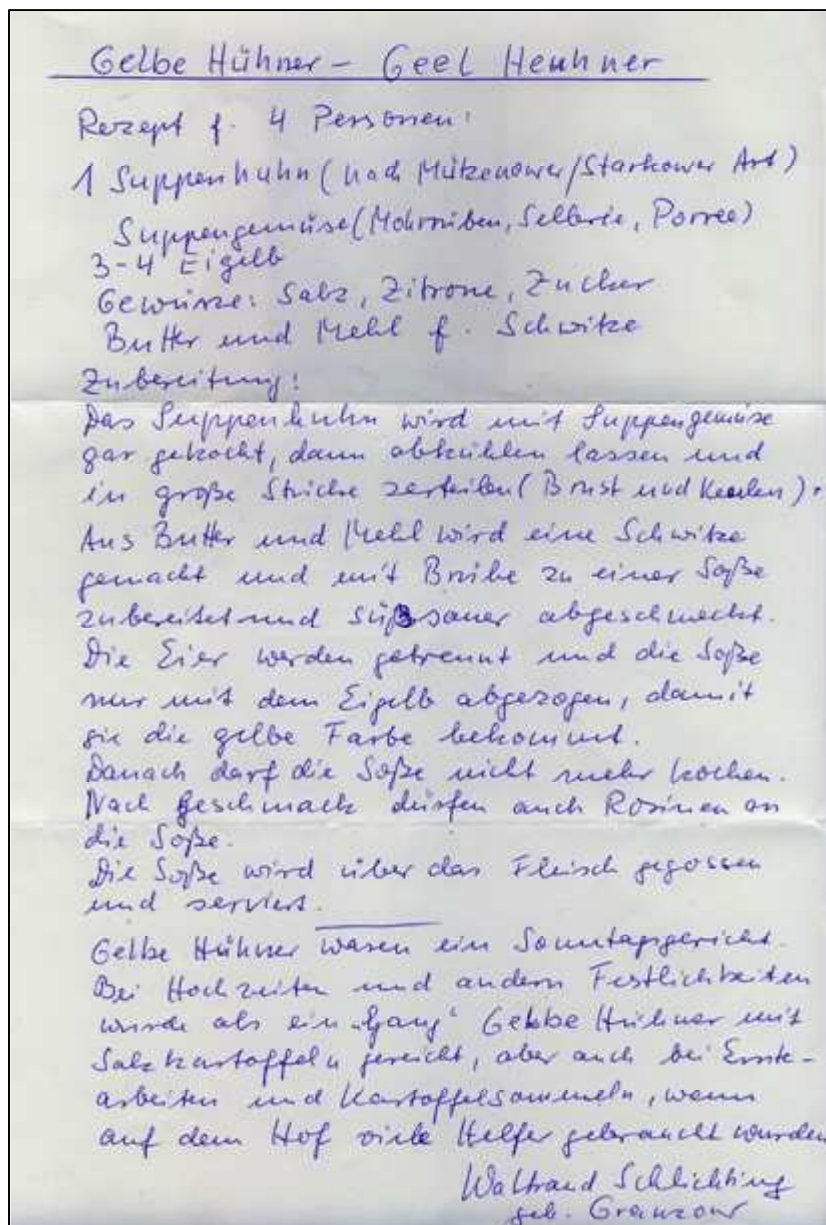 Gelbe Hühner – Geel Heuhner
Rezept f. 4 Personen:
1 Suppenhuhn (nach Mützenower/Starkower Art)
Suppengemüse (Mohrrüben, Sellerie, Porree)
3-4 Eigelb
Gewürze: Salz, Zitrone, Zucker
Butter und Mehl f. Schwitze
Zubereitung:
Das Suppenhuhn wird mit Suppengemüse
gar gekocht, dann abkühlen lassen und
in große Stücke zerteilen (Brust und Keulen).
Aus Butter und Mehl wird eine Schwitze
gemacht und mit Brühe zu einer Soße
zubereitet und süßsauer abgeschmeckt.
Die Eier werden getrennt und die Soße
nur mit dem Eigelb abgezogen, damit
sie die gelbe Farbe bekommt.
Danach darf die Soße nicht mehr kochen.
Nach Geschmack dürfen auch Rosinen an
die Soße.
Die Soße wird über das Fleisch gegossen
und serviert.
Gelbe Hühner waren ein Sonntagsgericht.
Bei Hochzeiten und andern Festlichkeiten
wurde als ein „Gang“ Gelbe Hühner mit
Salzkartoffeln gereicht, aber auch bei Ernte-
arbeiten und Kartoffelsammeln, wenn
auf dem Hof viele Helfer gebraucht wurden
Waltraud Schlichting
geb. Granzow